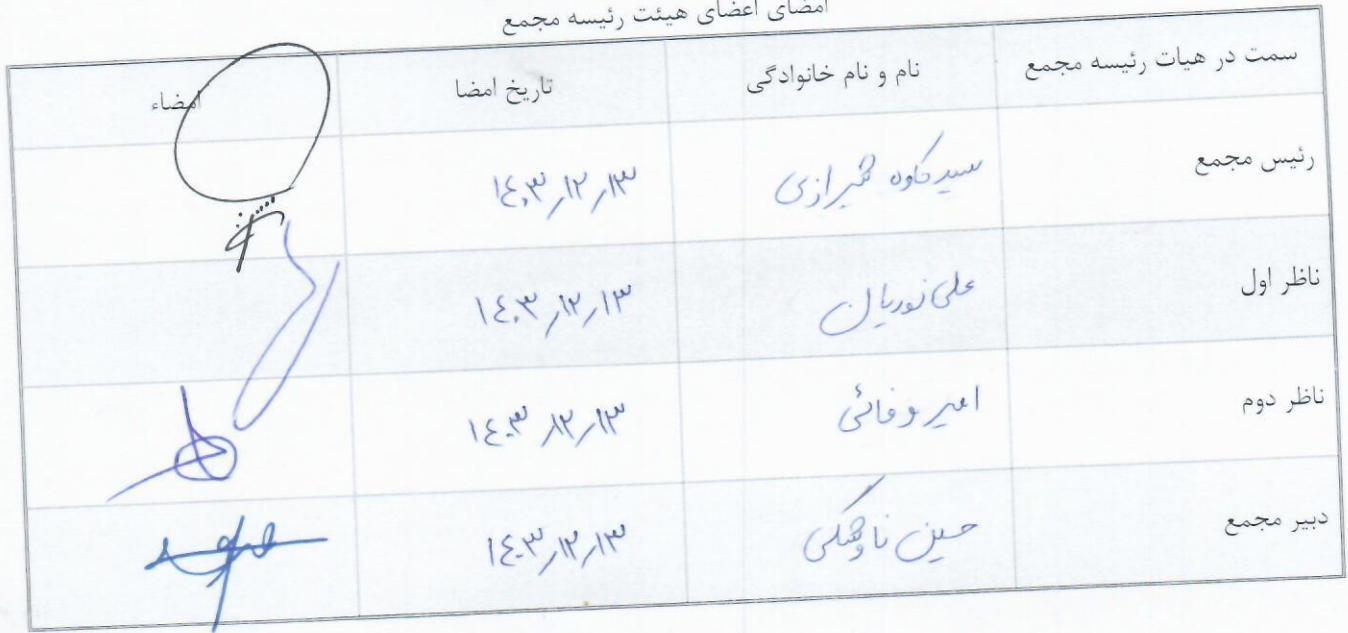 امضای اعضای هیئت رئیسه مجمع
سمت در هیات رئیسه مجمع نام و نام خانوادگی تاریخ امضا امضاء
رئیس مجمع سیدکاوه شیرازی ۱۴۰۳/۱۲/۱۳
ناظر اول علی نوریان ۱۴۰۳/۱۲/۱۳
ناظر دوم امیر وفائی ۱۴۰۳/۱۲/۱۳
دبیر مجمع حسین ۱۴۰۳/۱۲/۱۳